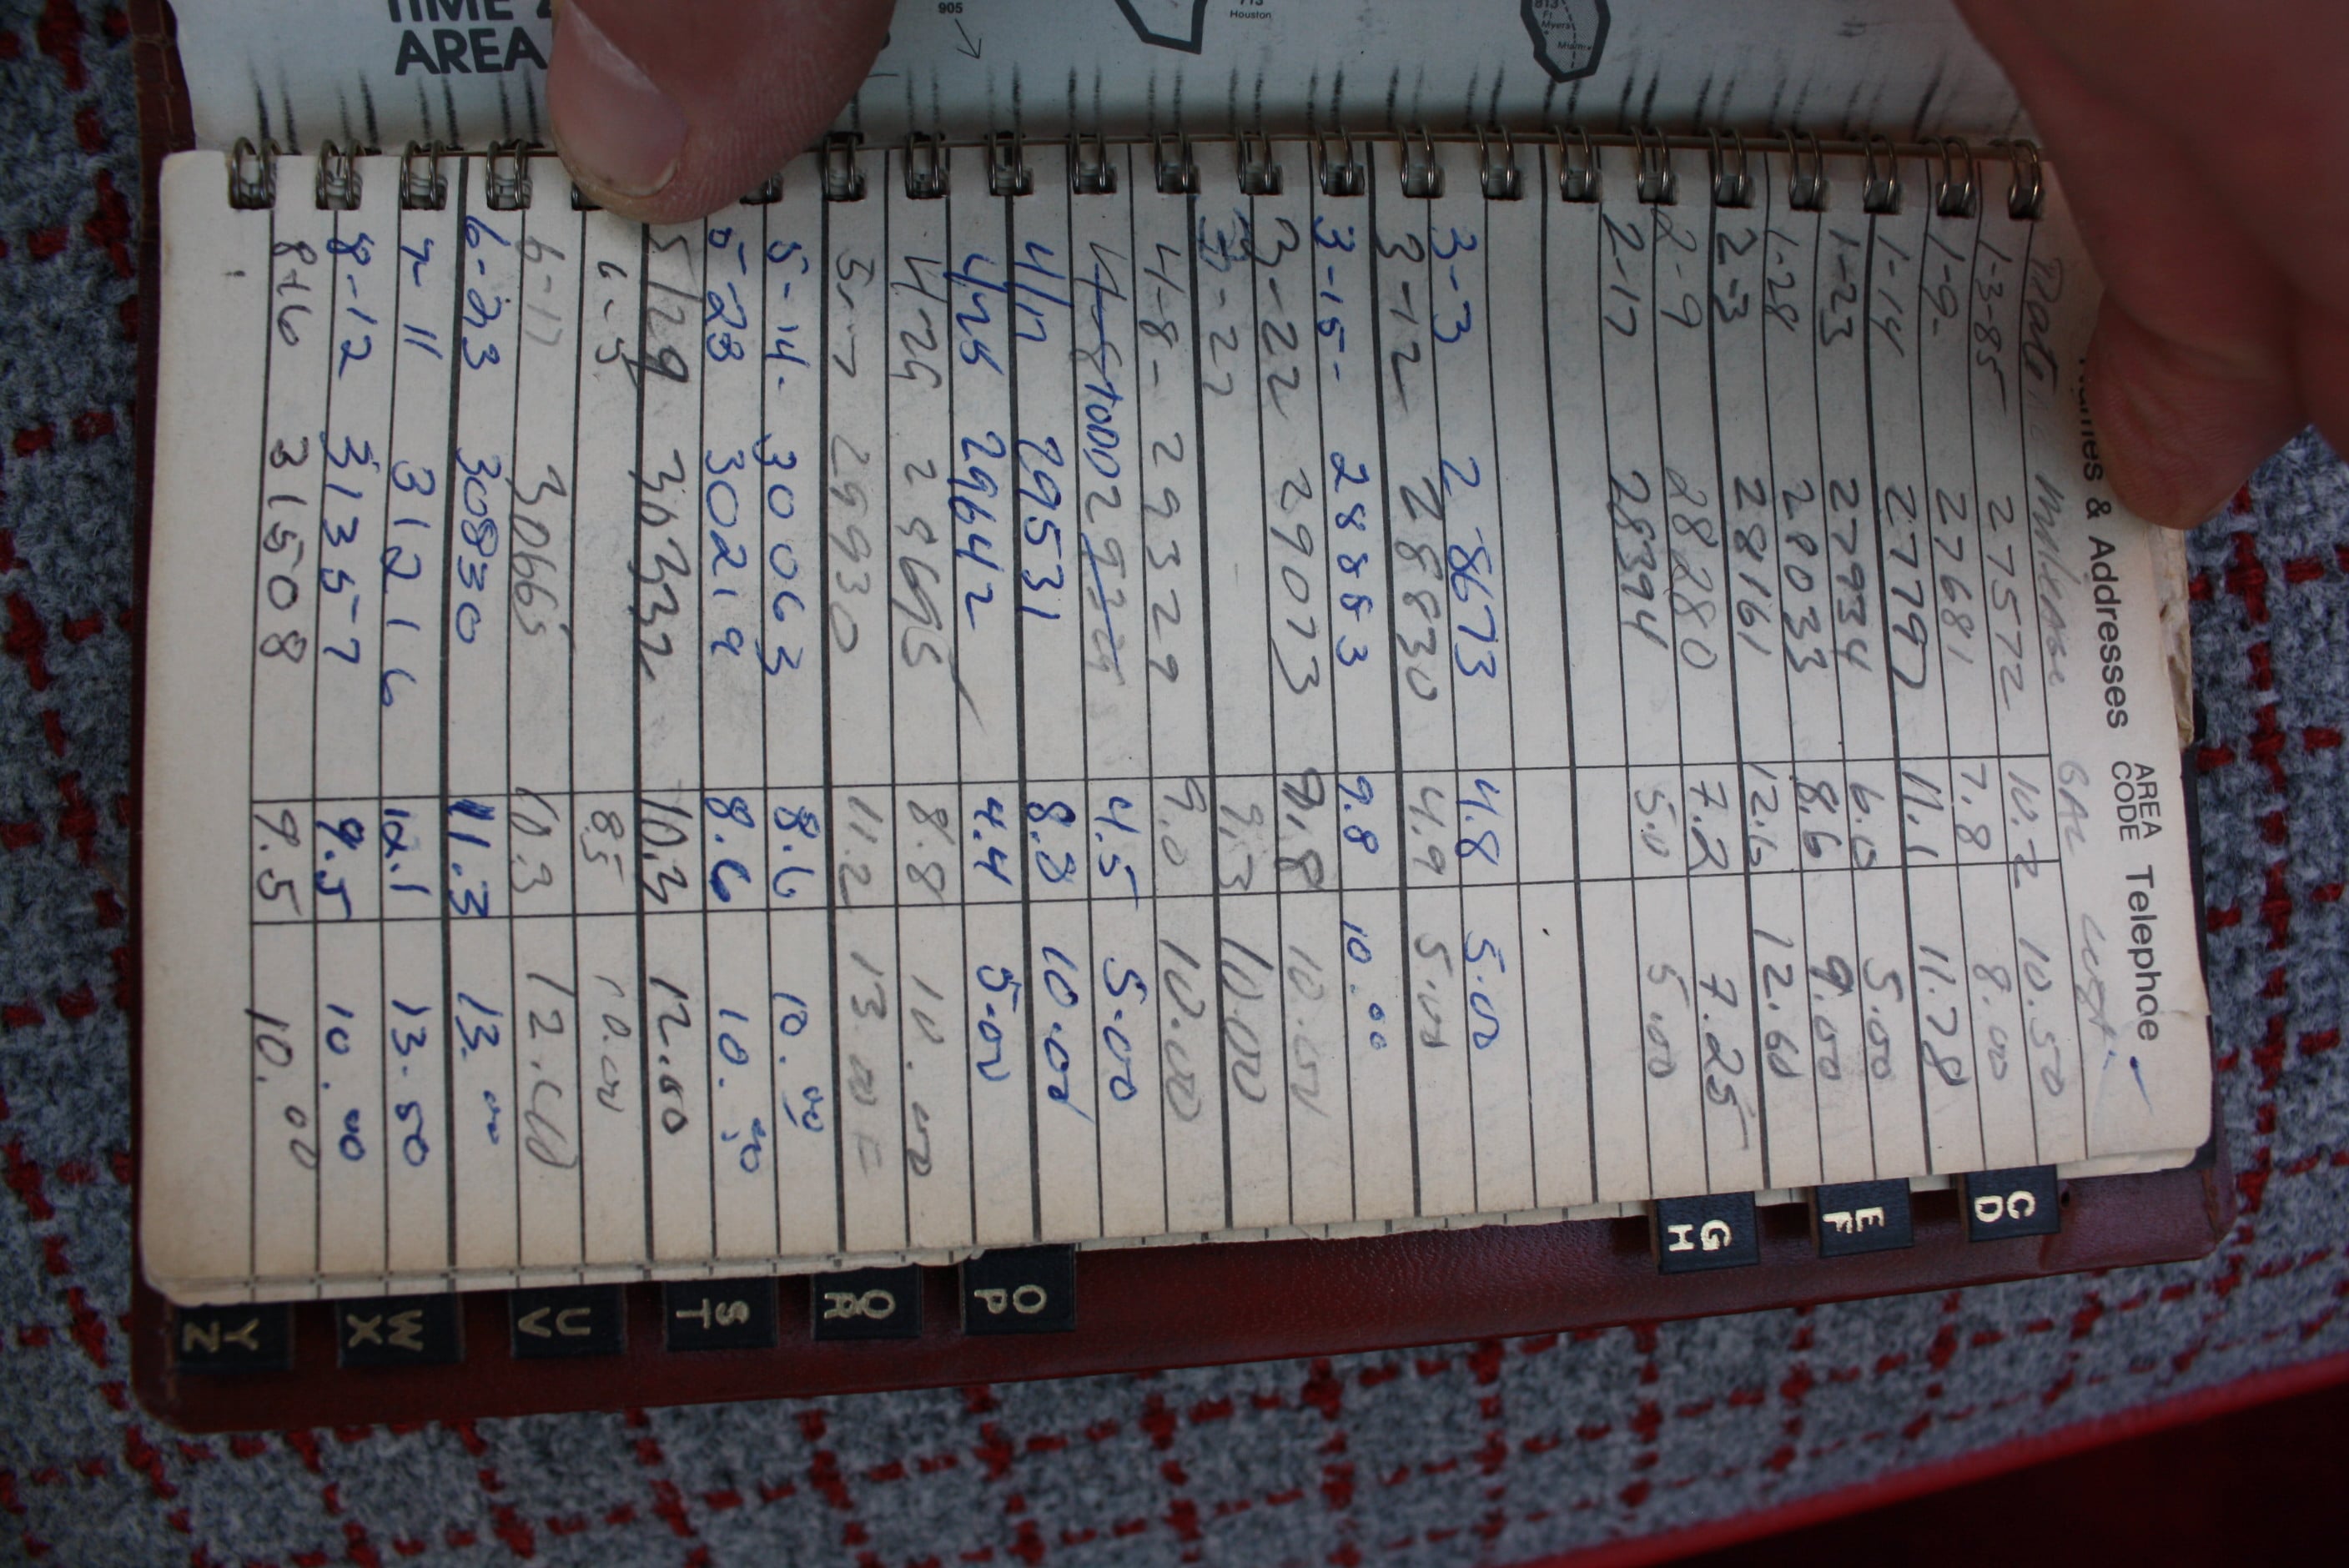 TIME
AREA
905
713
Houston
813
Ft.
Myers
Miami
Names & Addresses AREA CODE Telephoe
Date Mileage GAL Cost
1-3-85 27572 10.2 10.50
1-9- 27681 7.8 8.00
1-14 27797 11.1 11.78
1-23 27934 6.0 5.00
1-28 28033 8.6 9.00
2-3 28161 12.6 12.60
2-9 28280 7.2 7.25
2-17 28394 5.0 5.00
3-3 28673 4.8 5.00
3-12 28830 4.9 5.00
3-15- 28883 9.8 10.00
3-22 29073 9.8 10.00
3-27 9.3 10.00
4-8- 29329 9.0 10.00
4-8 TODD 4.5 5.00
4/17 29531 8.8 10.00
4-26 29642 4.4 5.00
4-29 8.8 10.00
5-7 29930 11.2 13.00
5-14- 30063 8.6 10.00
5-23 30219 8.6 10.00
5/29 30332 10.3 12.00
6-5 8.5 10.00
6-17 30665 10.3 12.00
6-23 30830 11.3 13.00
7-11 31216 12.1 13.50
8-12 31357 9.5 10.00
8-16 31508 9.5 10.00
C D
E F
G H
O P
Q R
S T
U V
W X
Y Z